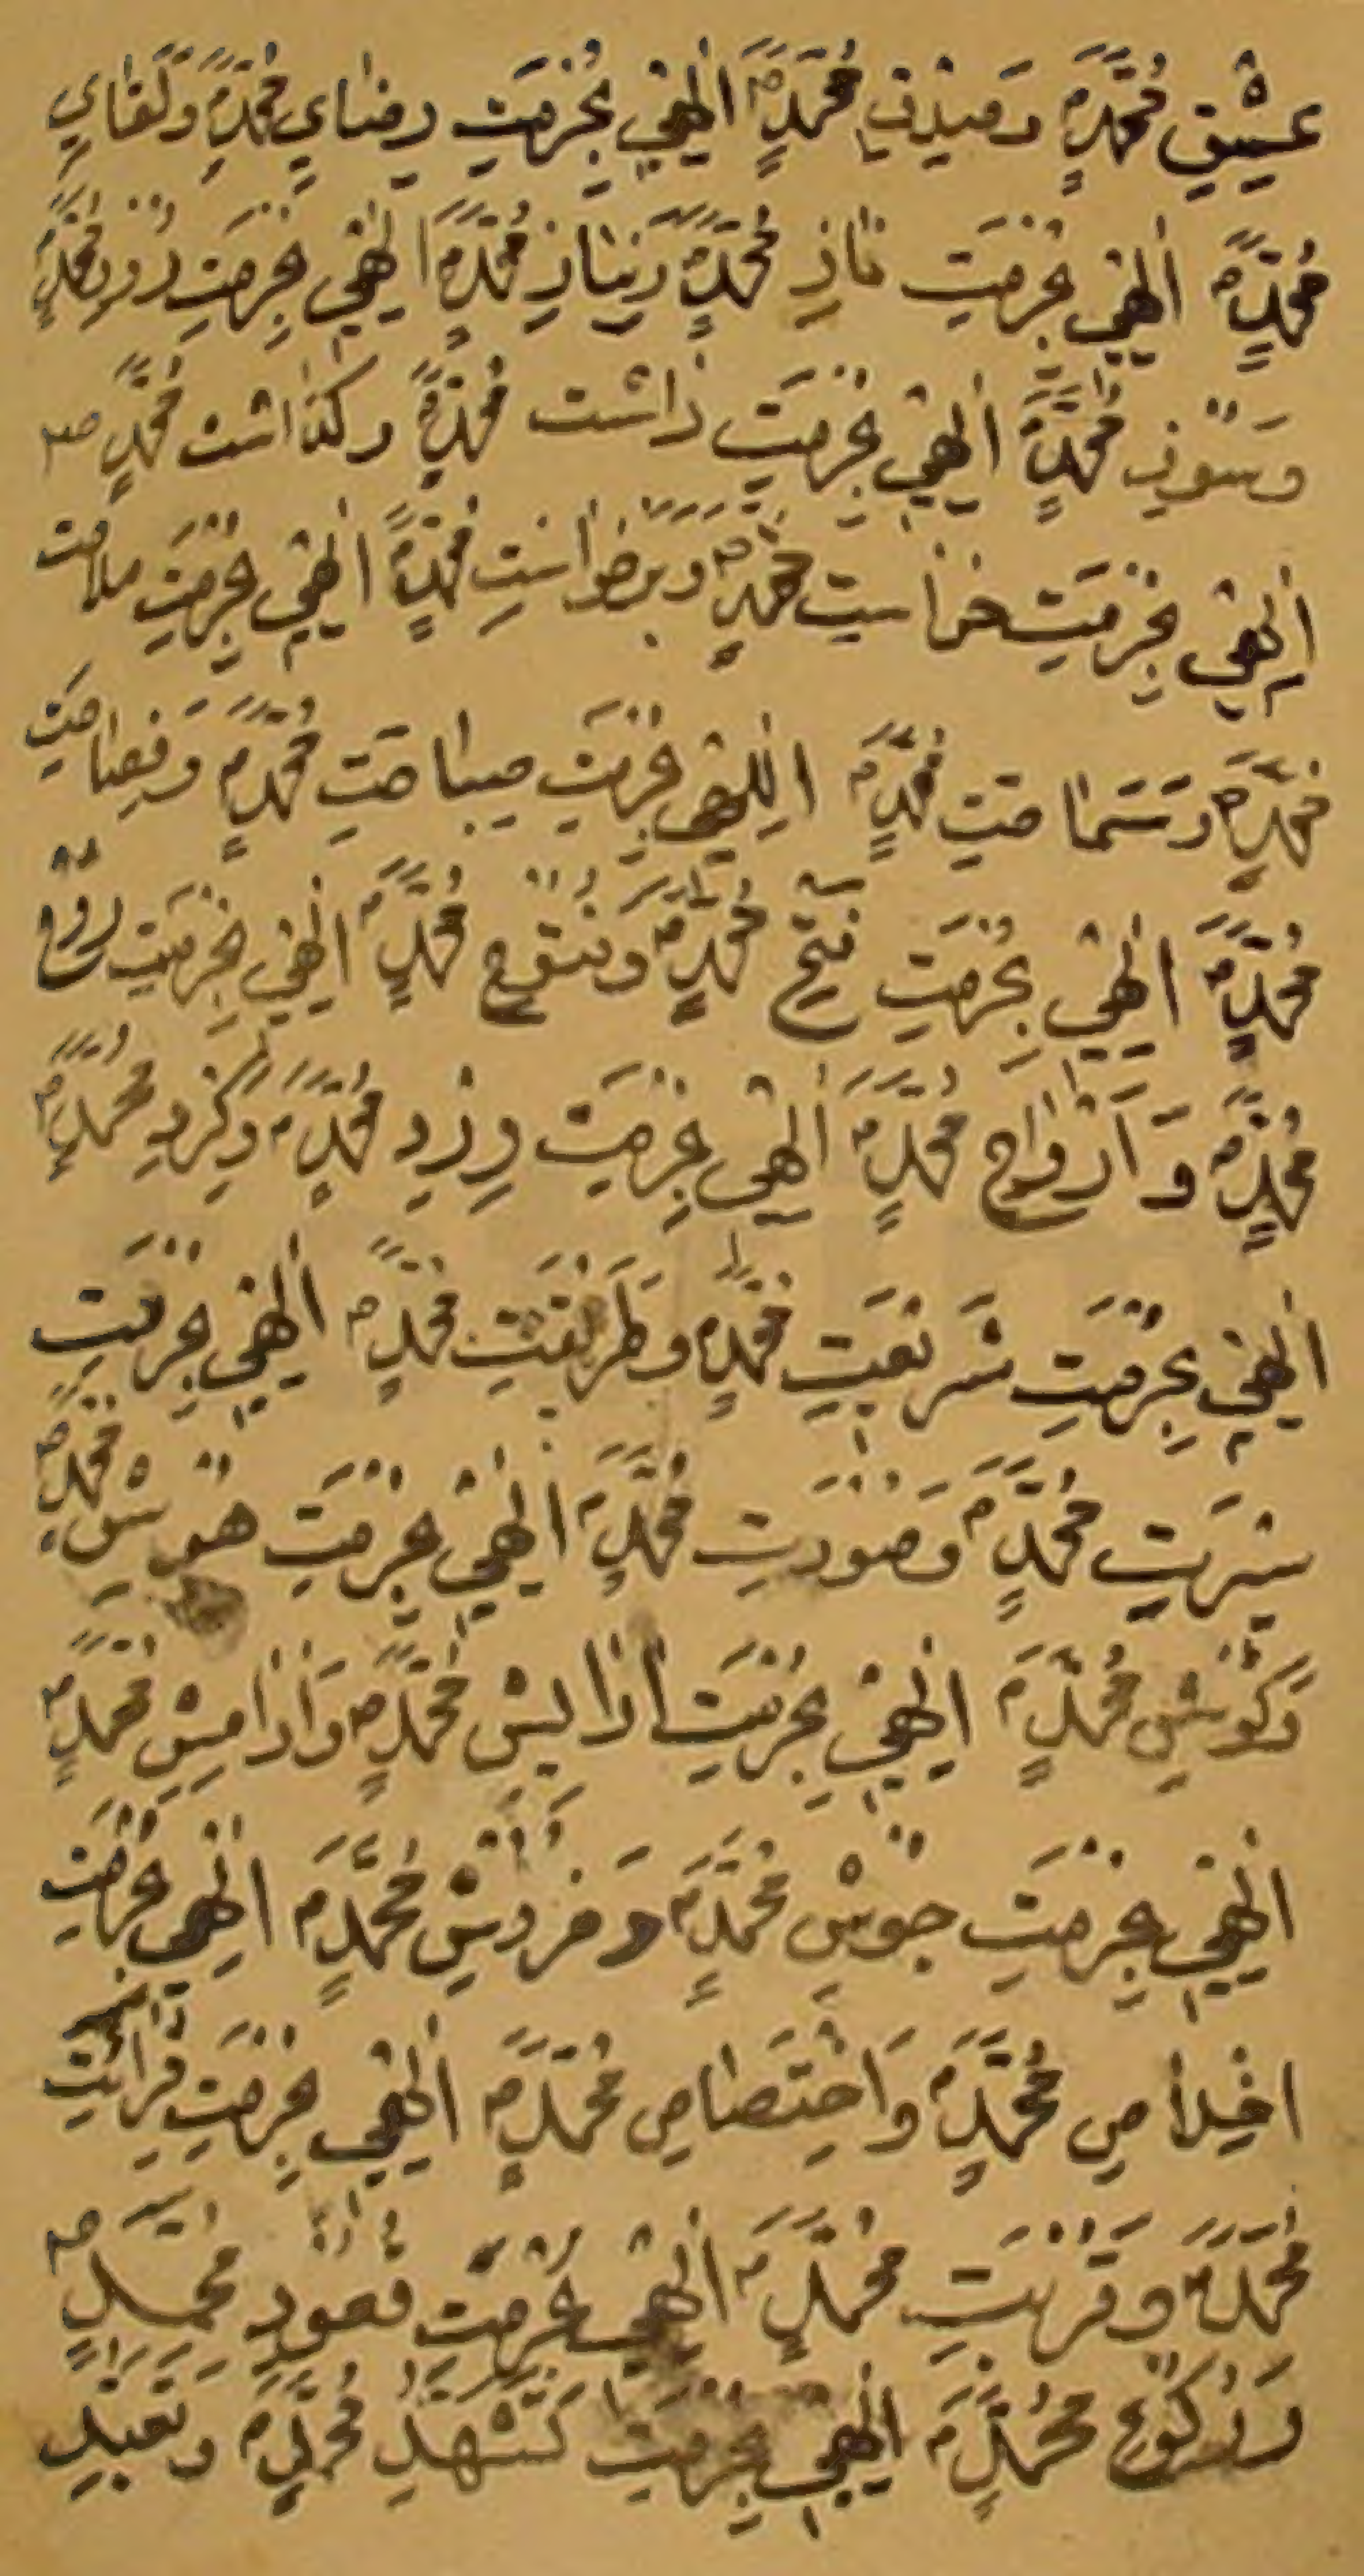 عِشْقِ مُحَمَّدٍ وَصِدْقِ مُحَمَّدٍ اِلٰهِي بِحُرْمَتِ رِضَايِ مُحَمَّدٍ وَلَقَايِ
مُحَمَّدٍ اِلٰهِي بِحُرْمَتِ نَازِ مُحَمَّدٍ وَنِيَازِ مُحَمَّدٍ اِلٰهِي بِحُرْمَتِ
وَسَوْزِ مُحَمَّدٍ اِلٰهِي بِحُرْمَتِ دَاشْت مُحَمَّدٍ وَكُذَاشْت مُحَمَّدٍ
اِلٰهِي بِحُرْمَتِ خَوَاسْتِ مُحَمَّدٍ وَبَرْخَوَاسْتِ مُحَمَّدٍ اِلٰهِي بِحُرْمَتِ
مُحَمَّدٍ وَسَمَاحَتِ مُحَمَّدٍ اِلٰهِي بِحُرْمَتِ صَبَاحَتِ مُحَمَّدٍ وَفَصَاحَتِ
مُحَمَّدٍ اِلٰهِي بِحُرْمَتِ فَتْحِ مُحَمَّدٍ وَفُتُوحِ مُحَمَّدٍ اِلٰهِي بِحُرْمَتِ رُوْحِ
مُحَمَّدٍ وَاَرْوَاحِ مُحَمَّدٍ اِلٰهِي بِحُرْمَتِ وِرْدِ مُحَمَّدٍ مُحَمَّدٍ
اِلٰهِي بِحُرْمَتِ شَرِيْعَتِ مُحَمَّدٍ وَطَرِيْقَتِ مُحَمَّدٍ اِلٰهِي بِحُرْمَتِ
سِيْرَتِ مُحَمَّدٍ وَصُوْرَتِ مُحَمَّدٍ اِلٰهِي بِحُرْمَتِ هُوْشِ مُحَمَّدٍ
وَكُوْشِ مُحَمَّدٍ اِلٰهِي بِحُرْمَتِ مُحَمَّدٍ مُحَمَّدٍ
اِلٰهِي بِحُرْمَتِ جُوْشِ مُحَمَّدٍ وَخَرُوْشِ مُحَمَّدٍ اِلٰهِي بِحُرْمَتِ
اِخْلَاصِ مُحَمَّدٍ وَاخْتِصَاصِ مُحَمَّدٍ اِلٰهِي بِحُرْمَتِ
مُحَمَّدٍ وَقُرْبَتِ مُحَمَّدٍ اِلٰهِي بِحُرْمَتِ قُعُوْدِ مُحَمَّدٍ
وَرُكُوْعِ مُحَمَّدٍ اِلٰهِي بِحُرْمَتِ تَشَهُّدِ مُحَمَّدٍ